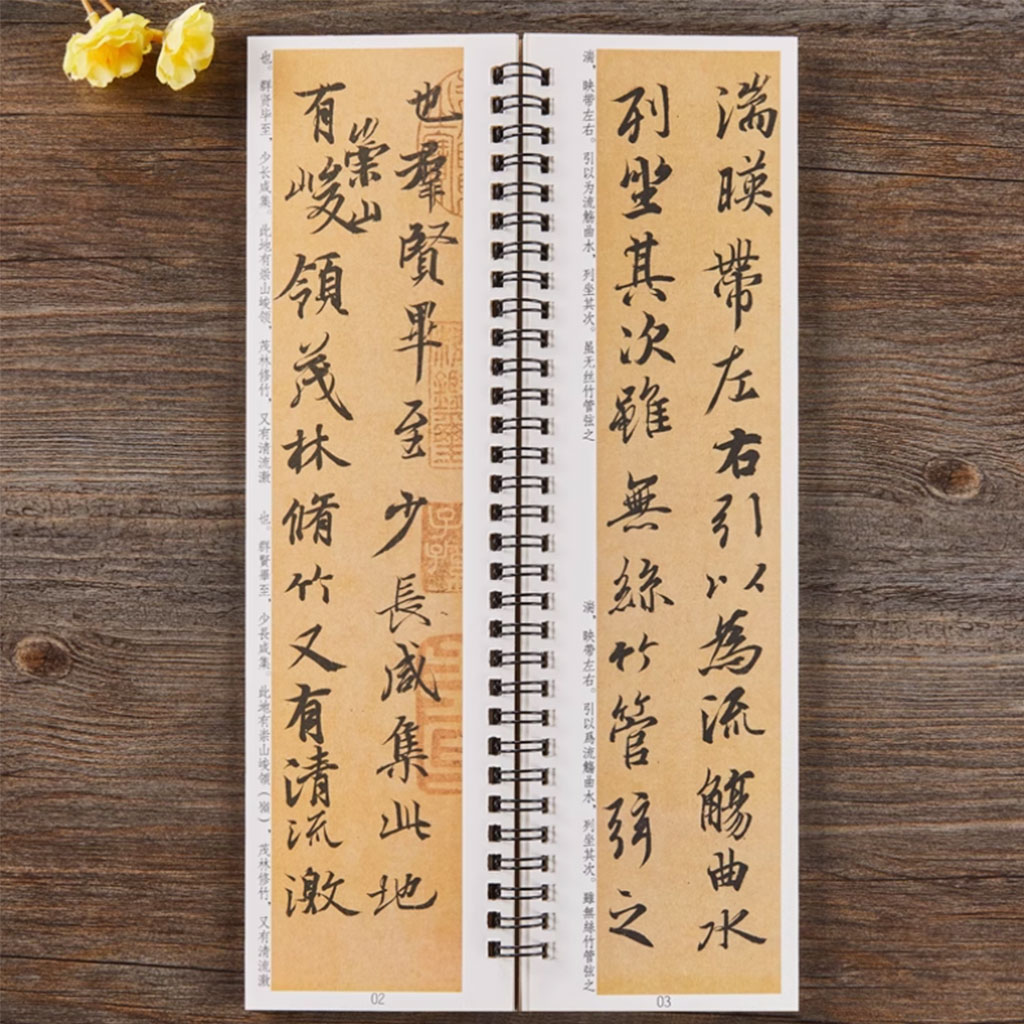 也羣賢畢至少長咸集此地
有崇山峻領茂林脩竹又有清流激
也。群贤毕至，少长咸集。此地有崇山峻领，茂林修竹，又有清流激
也。群賢畢至，少長咸集。此地有崇山峻領（嶺），茂林修竹，又有清流激
02
湍暎帶左右引以為流觴曲水
列坐其次雖無絲竹管弦之
湍，映带左右。引以为流觞曲水，列坐其次。虽无丝竹管弦之
湍，映帶左右。引以爲流觴曲水，列坐其次。雖無絲竹管弦之
03